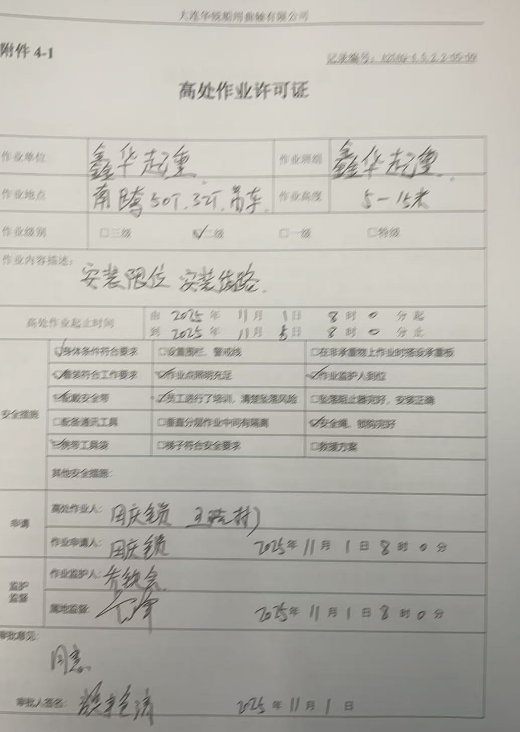 大连华锐船用曲轴有限公司
附件 4-1
记录编号:
高处作业许可证
作业单位 鑫华起重 作业班组 鑫华起重
作业地点 南跨50T.32T.吊车. 作业高度 5-15米
作业级别 □三级 ☑二级 □一级 □特级
作业内容描述:
安装限位 安装线路.
高处作业起止时间 由 2025 年 11 月 1 日 8 时 0 分 起
到 2025 年 11 月 5 日 8 时 0 分 止
安全措施
☑身体条件符合要求 □设置围栏、警戒线 □在非承重物上作业时搭设承重板
☑着装符合工作要求 ☑作业点照明充足 ☑作业监护人到位
☑配戴安全带 ☑员工进行了培训，清楚坠落风险 □坠落阻止器完好，安装正确
□配备通讯工具 □垂直分层作业中间有隔离 ☑安全绳、锁钩完好
☑携带工具袋 □梯子符合安全要求 □救援方案
其他安全措施:
申请
高处作业人:
作业申请人: 2025年 11 月 1 日 8 时 0 分
监护
监督
作业监护人:
属地监督: 2025年 11 月 1 日 8 时 0 分
审批意见:
同意.
审批人签名: 2025 年 11 月 1 日